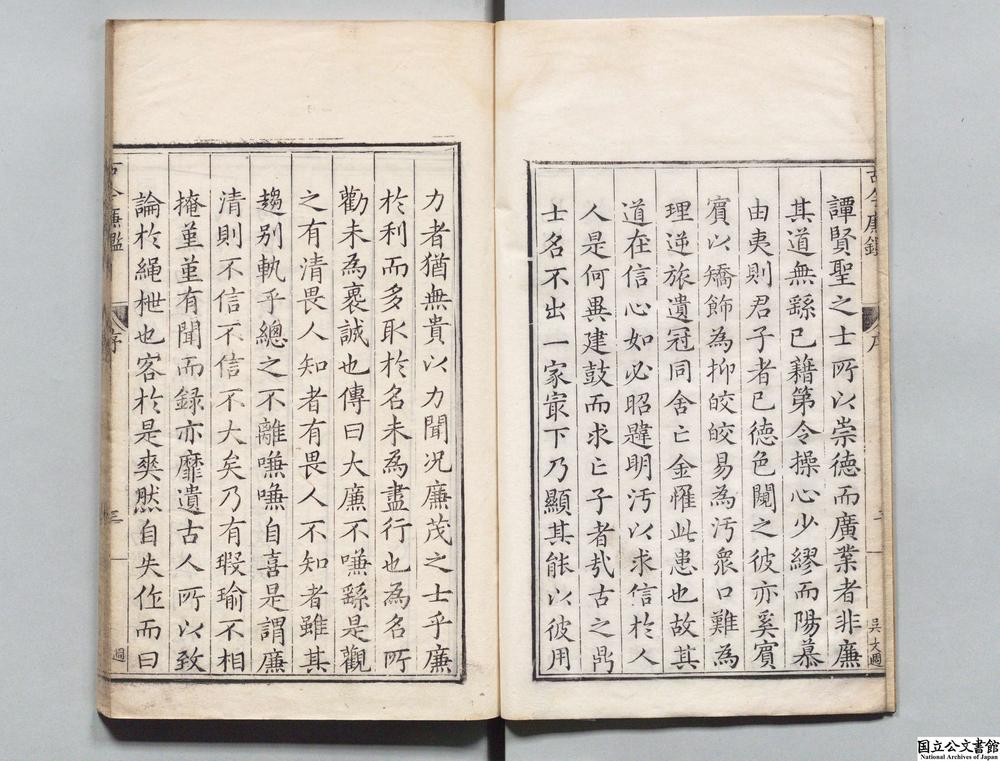 譚賢聖之士所以崇德而廣業者非廉
其道無繇已藉第令操心少繆而陽慕
由夷則君子者已德色闚之彼亦奚賓
賓以矯飾為抑皎皎易為汚衆口難為
理逆旅遺冠同舍亡金罹此患也故其
道在信心如必昭韙明汚以求信於人
人是何異建鼓而求亡子者㢤古之鼎
士名不出一家㝡下乃顯其能以彼用
力者猶無貴以力聞况廉茂之士乎廉
於利而多取於名未為盡行也為名所
勸未為裹誠也傳曰大廉不嗛繇是觀
之有清畏人知者有畏人不知者雖其
趨别軌乎總之不離嗛嗛自喜是謂廉
清則不信不信不大矣乃有瑕瑜不相
掩堇堇有聞而録亦靡遺古人所以致
論於繩枻也客於是爽然自失作而曰
古今廉鑑
序
三
吳文週
国立公文書館
National Archives of Japan